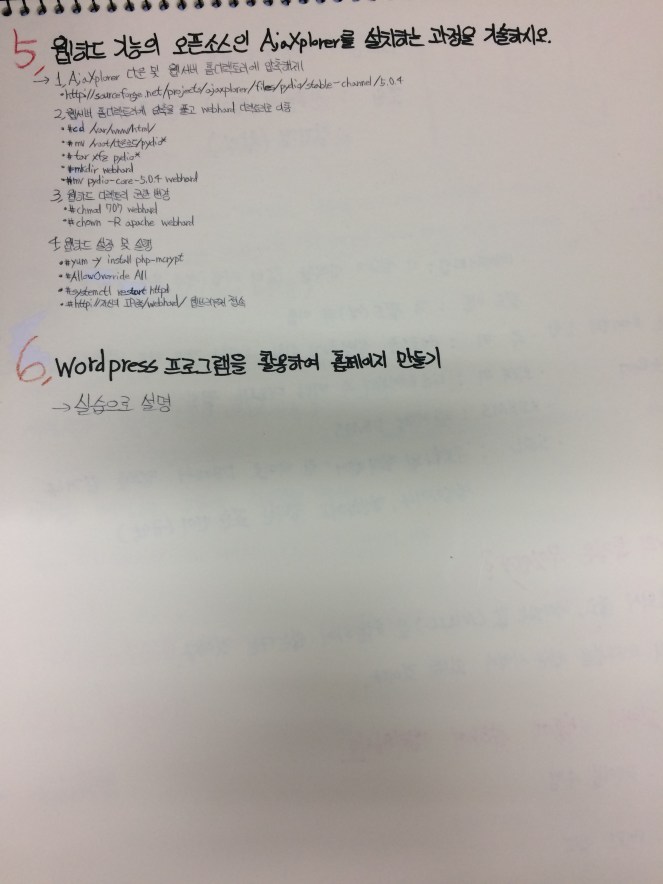 5. 웹하드 기능의 오픈소스인 AjaXplorer를 설치하는 과정을 기술하시오.
→ 1. AjaXplorer 다운 및 웹서버 홈디렉토리에 압축하기
• http://sourceforge.net/projects/ajaxplorer/files/pydio/stable-channel/5.0.4
2. 웹서버 홈디렉토리에 압축을 풀고 webhard 디렉토리로 이동
• #cd /var/www/html/
• #mv /root/다운로드/pydio*
• #tar xfz pydio*
• #mkdir webhard
• #mv pydio-core-5.0.4 webhard
3. 웹하드 디렉토리 권한 변경
• #chmod 707 webhard
• #chown -R apache webhard
4. 웹하드 설정 및 실행
• #yum -y install php-mcrypt
• #AllowOverride All
• #systemctl restart httpd
• #http://자신의 IP주소/webhard/ 접속
6. Wordpress 프로그램을 활용하여 홈페이지 만들기
→ 실습으로 설명